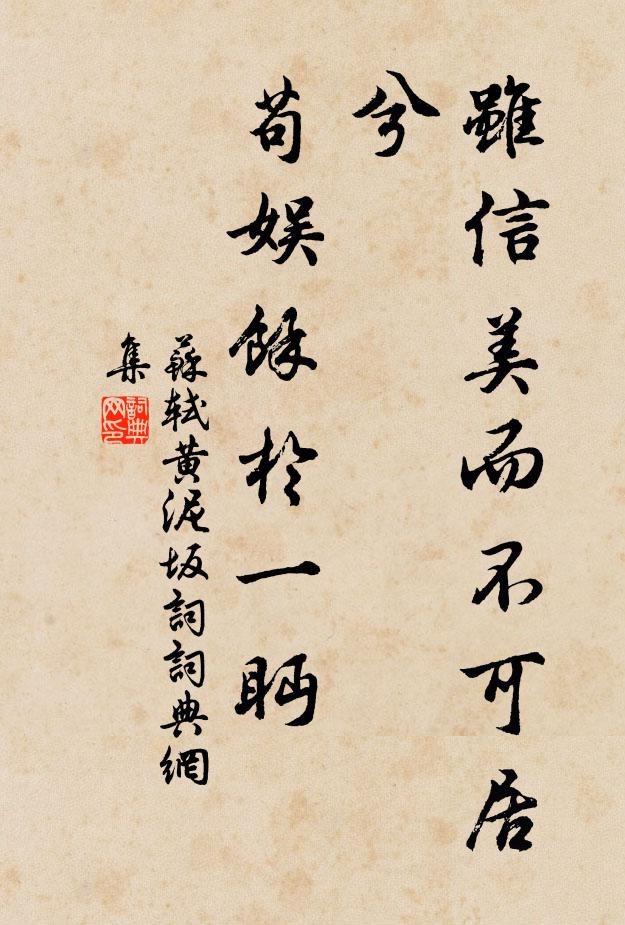 雖信美而不可居
兮
苟娛餘於一眄
蘇軾黃泥坂詞詞典網
集
詞典
网印